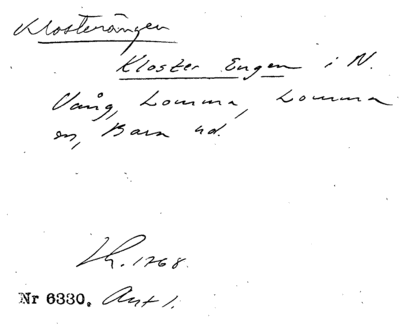 Klosterängen
Kloster Engen i N.
Vång, Lomma, Lomma
sn, Bara hd.
Lh. 1768.
Nr 6330. Ant 1.